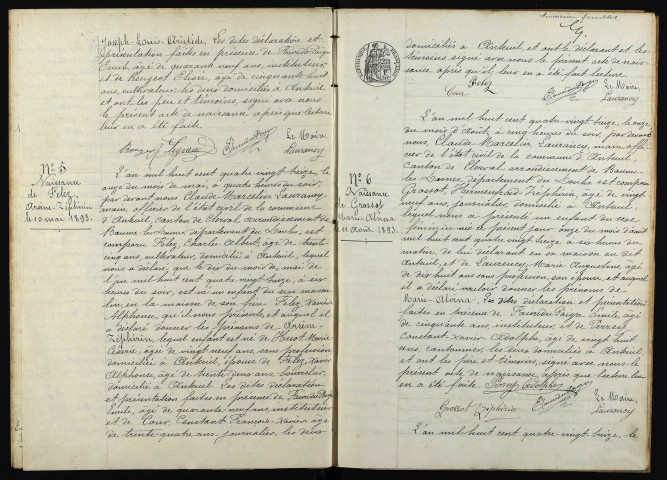 Joseph-Louis-Aristide. Les dites déclaration et
présentation faites en présence de
Emile, âgé de quarante neuf ans, instituteur,
et de Peugeot Elisée, âgé de cinquante huit
ans, cultivateur, les deux domiciliés à Anteuil
et ont les père et témoins, signé avec nous
le présent acte de naissance après que lecture
leur en a été faite.
Le Maire,
Laurency
N° 5
Naissance
de Felez,
Arsène-Zéphirin
le 10 mai 1893.
L'an mil huit cent quatre vingt treize, le
onze du mois de mai, à quatre heures du soir,
par devant nous Claude Marcelin Laurency
maire, officier de l'état civil de la commune
d'Anteuil, canton de Clerval, arrondissement de
Baume les Dames, département du Doubs, est
comparu Felez, Charles Albert, âgé de trente
cinq ans, cultivateur, domicilié à Anteuil, lequel
nous a déclaré, que le dix du mois de mai de
l'an mil huit cent quatre vingt treize, à six
heures du soir, est né un enfant du sexe mascu
lin, en la maison de son père Felez, Xavier
Alphonse, qu'il nous présente, et auquel il
a déclaré donner les prénoms de Arsène-
Zéphirin, lequel enfant est né de Marie
âgée de vingt neuf ans, sans profession
domiciliée à Anteuil, épouse de Felez, Xavier
Alphonse, âgé de trente deux ans,
domicilié à Anteuil. Les dites déclaration
et présentation faites en présence de
Emile, âgé de quarante neuf ans, instituteur
et de Cour, Constant François-Xavier, âgé
de trente quatre ans, journalier, les deux
domiciliés à Anteuil, et ont le déclarant et les
témoins signé avec nous le présent acte de nais-
sance après qu'il leur en a été fait lecture
Felez
Cour
Le Maire,
Laurency
N° 6
Naissance
de Grosset
Marie-Alvina
le 11 Août 1893.
L'an mil huit cent quatre vingt treize, le onze
du mois d'Août, à cinq heures du soir, par devant
nous, Claude Marcelin, Laurency, maire, offi-
cier de l'état civil de la commune d'Anteuil,
canton de Clerval, arrondissement de Baume-
les-Dames, département du Doubs est comparu
Grosset, Zéphirin, âgé de vingt
neuf ans, journalier, domicilié à Anteuil,
lequel nous a présenté un enfant du sexe
féminin né ce présent jour onze du mois d'août
mil huit cent quatre vingt treize à six heures du
matin de lui déclarant en sa maison au dit
Anteuil, et de Laurency, Marie Augustine, âgée
de dix huit ans sans profession, son épouse, et auquel
il a déclaré vouloir donner les prénoms de
Marie-Alvina. Les dites déclaration et présentation
faites en présence de Emile, âgé
de cinquante ans, instituteur, et de
Constant-Xavier-Adolphe, âgé de vingt huit
ans, cantonnier, les deux domiciliés à Anteuil
et ont les père et témoins, signé avec nous le
présent acte de naissance, après que lecture leur
en a été faite.
Grosset Zéphirin
Le Maire,
Laurency
L'an mil huit cent quatre-vingt treize, le